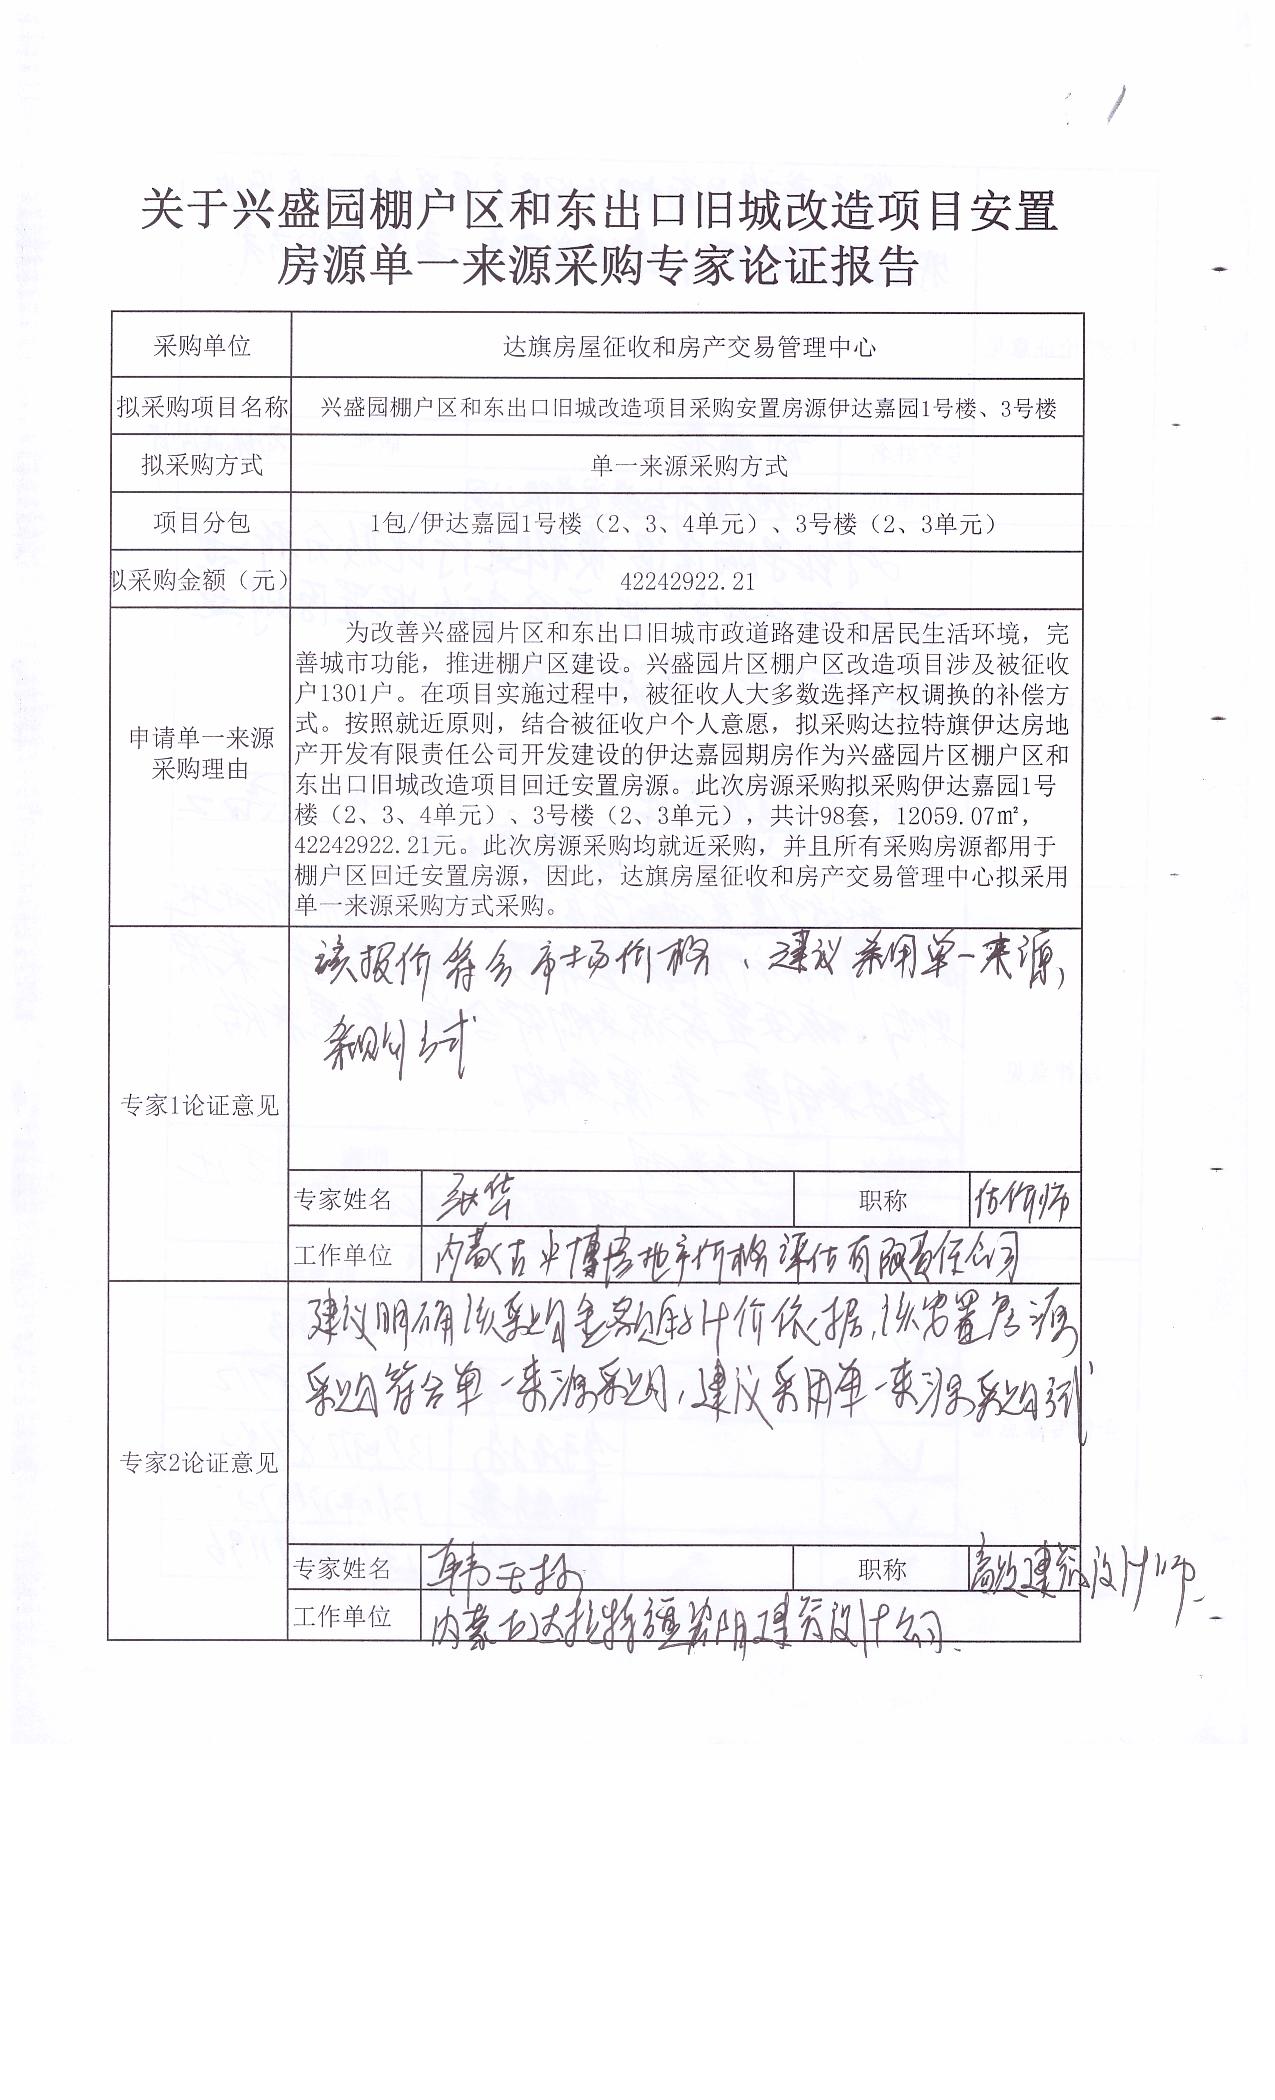 关于兴盛园棚户区和东出口旧城改造项目安置
房源单一来源采购专家论证报告
采购单位
达旗房屋征收和房产交易管理中心
拟采购项目名称
兴盛园棚户区和东出口旧城改造项目采购安置房源伊达嘉园1号楼、3号楼
拟采购方式
单一来源采购方式
项目分包
1包/伊达嘉园1号楼（2、3、4单元）、3号楼（2、3单元）
拟采购金额（元）
42242922.21
申请单一来源
采购理由
为改善兴盛园片区和东出口旧城市政道路建设和居民生活环境，完
善城市功能，推进棚户区建设。兴盛园片区棚户区改造项目涉及被征收
户1301户。在项目实施过程中，被征收人大多数选择产权调换的补偿方
式。按照就近原则，结合被征收户个人意愿，拟采购达拉特旗伊达房地
产开发有限责任公司开发建设的伊达嘉园期房作为兴盛园片区棚户区和
东出口旧城改造项目回迁安置房源。此次房源采购拟采购伊达嘉园1号
楼（2、3、4单元）、3号楼（2、3单元），共计98套，12059.07㎡，
42242922.21元。此次房源采购均就近采购，并且所有采购房源都用于
棚户区回迁安置房源，因此，达旗房屋征收和房产交易管理中心拟采用
单一来源采购方式采购。
专家1论证意见
该报价符合市场价格、建议采用单一来源，
采购方式
专家姓名
张华
职称
估价师
工作单位
内蒙古 博房地产价格评估有限责任公司
专家2论证意见
建议明确该采购金额的计价依据，该安置房源
采购符合单一来源采购，建议采用单一来源采购方式
专家姓名
韩
职称
高级建筑设计师
工作单位
内蒙古达拉特 建筑设计公司